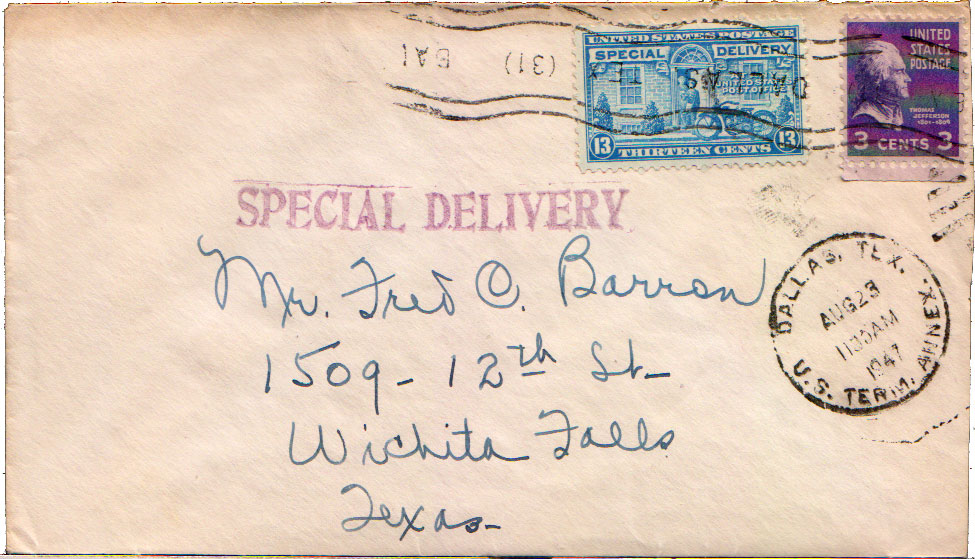 UNITED STATES POSTAGE
SPECIAL DELIVERY
UNITED STATES
POST OFFICE
13 13
THIRTEEN CENTS
UNITED
STATES
POSTAGE
THOMAS
JEFFERSON
1801-1809
3 CENTS 3
(31)
DALLAS
TEX
SPECIAL DELIVERY
DALLAS, TEX.
AUG 23
11 30 AM
1947
U.S. TERM. ANNEX
Mr. Fred C. Barron
1509 - 12th St.
Wichita Falls
Texas